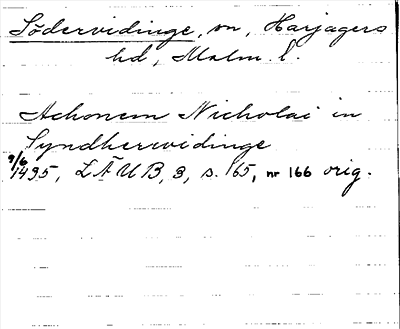 Södervidinge, sn, Harjagers
hd, Malm. l.
Achonem Nicholai in
Syndherwidinge
9/6 1495, LÄUB, 3, s. 165, nr 166 orig.